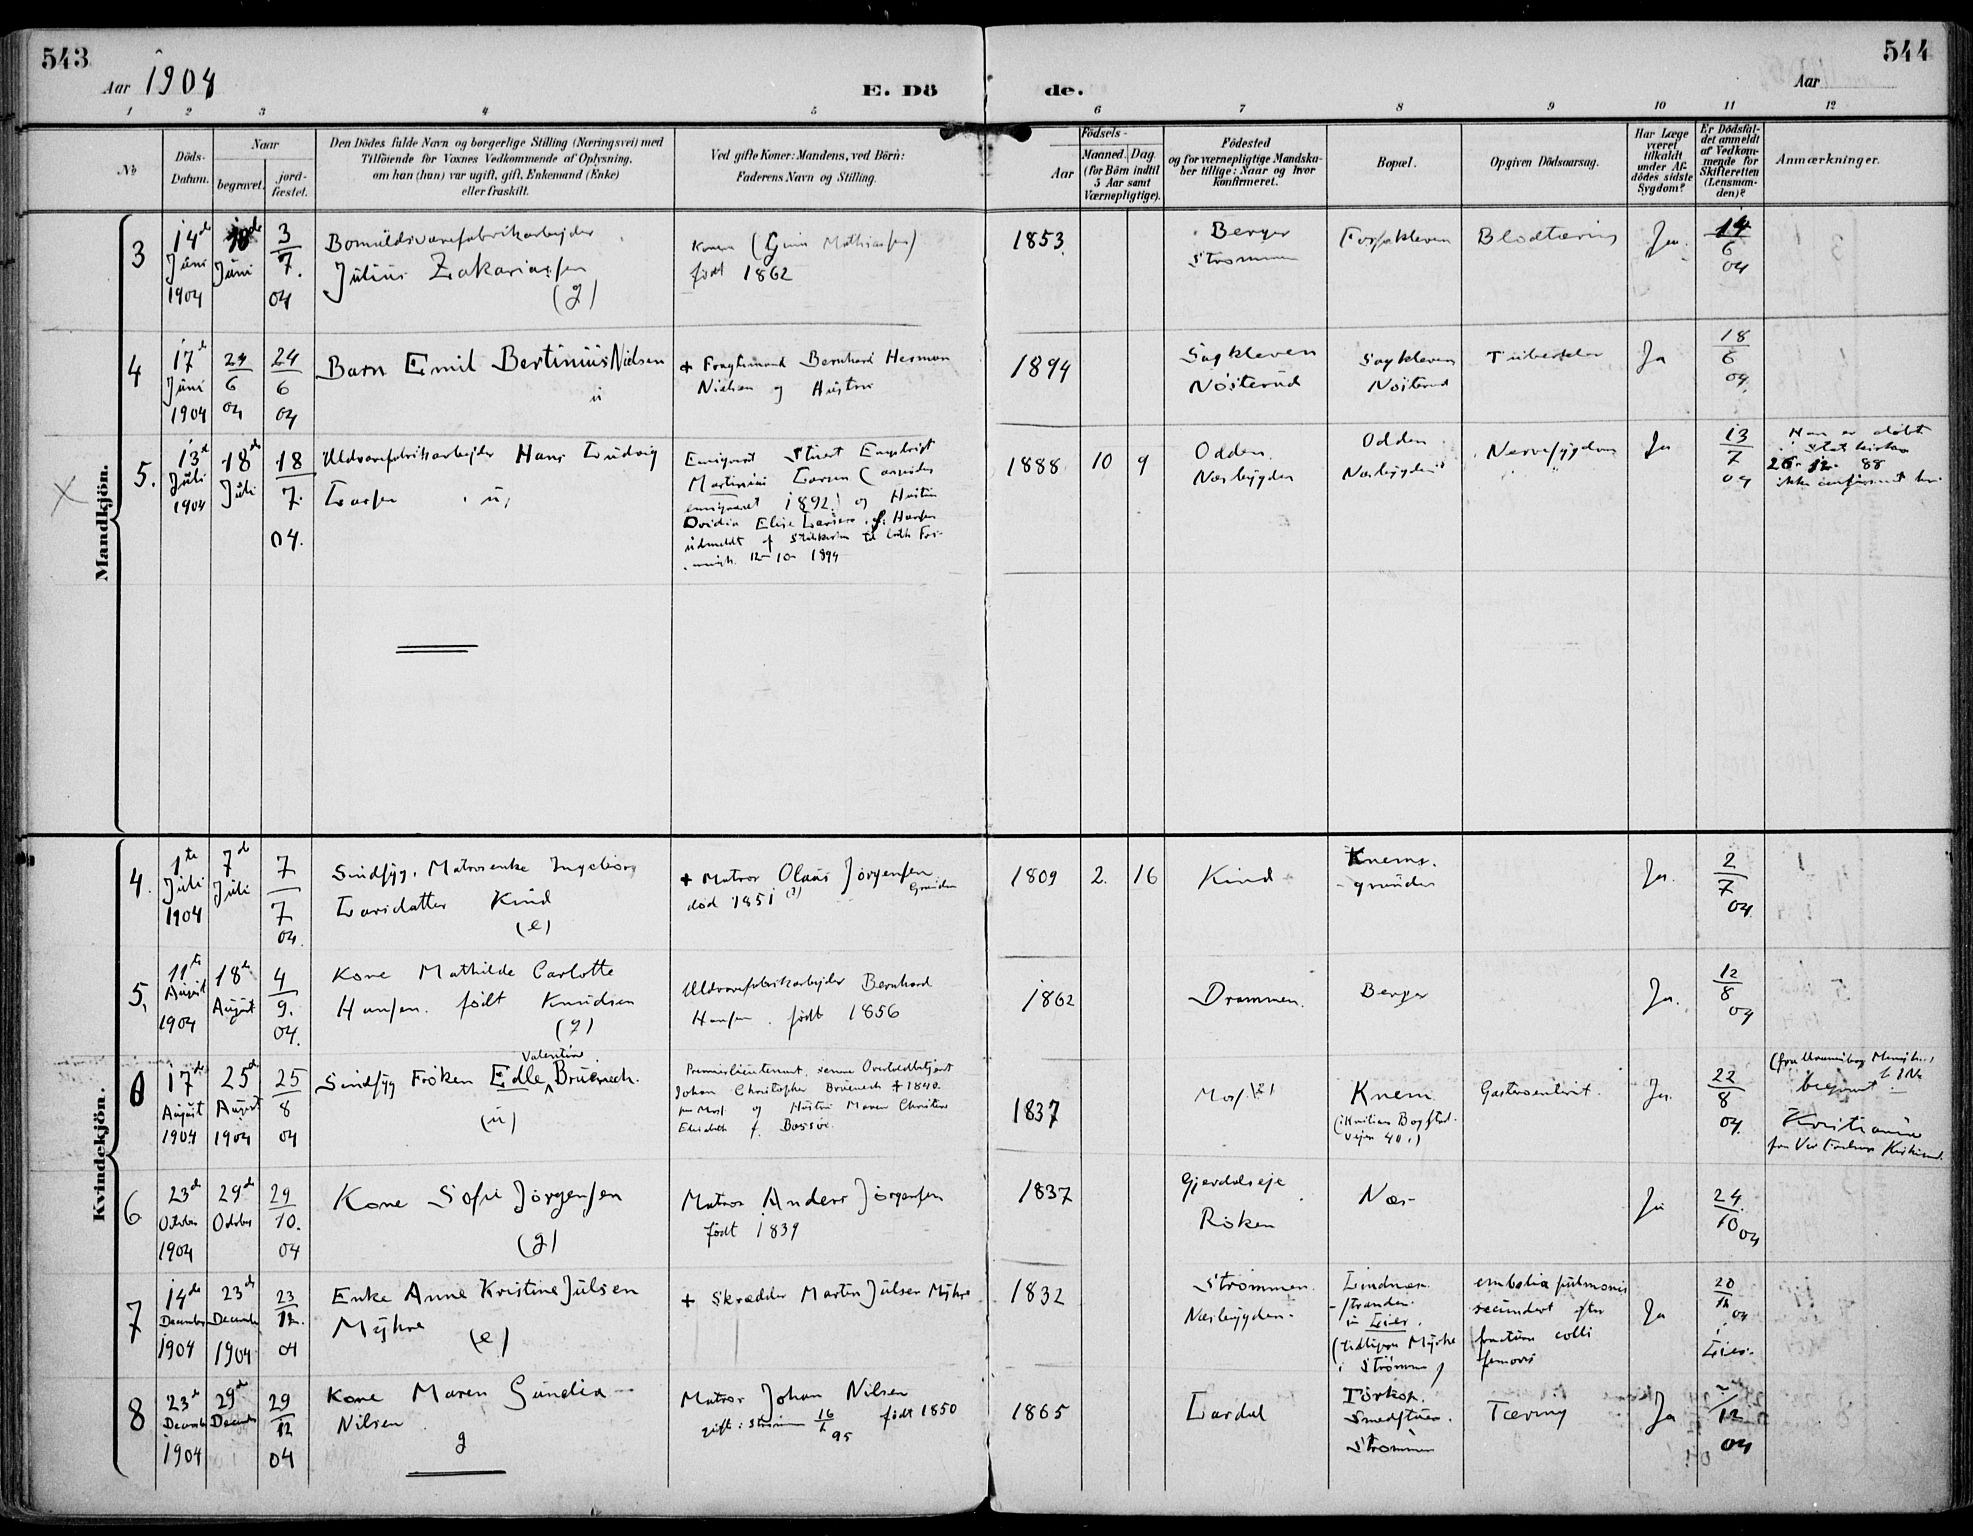 543
544
Aar 1904
E. Dö
de.
Aar
1 2 3 4 5 6 7 8 9 10 11 12
No
Döds-
Datum.
Naar
begravet.
jord-
fæstet.
Den Dödes fulde Navn og borgerlige Stilling (Næringsvei) med
Tilföiende for Voxnes Vedkommende af Oplysning,
om han (hun) var ugift, gift, Enkemand (Enke)
eller fraskilt.
Ved gifte Koner: Mandens, ved Börn:
Faderens Navn og Stilling.
Födsels-
Aar
Maaned.
Dag
(for Börn indtil
5 Aar samt
Værnepligtige).
Födested
og for værnepligtige Mandska-
ber tillige: Naar og hvor
Konfirmeret.
Bopæl.
Opgiven Dödsaarsag.
Har Læge
været
tilkaldt
under Af-
dödes sidste
Sygdom?
Er Dödsfal-
det anmeldt
af Vedkom-
mende for
Skifteretten
(Lensman-
den)?
Anmærkninger.
Mandkjön.
3
14de
Juni
1904
18de
Juni
3
7.
04
Bomuldsvarefabrikarbejder
Julius Zakariassen
(g)
Konen (Gina Mathiassen)
födt 1862
1853.
Berger
Strømmen
Fossekleven
Blodtæring
Ja.
14
6
04
4
17de
Juni
1904
24
6
04
24
6
04
Barn Emil Bertinius Nielsen
u
+ Fragtemand Bernhard Herman
Nielsen og Hustru
1894
Sagkleven
Nösterud
Sagkleven
Nösterud
Tuberkler
Ja
18
6
04.
X
5.
13de
Juli
1904
18de
Juli
18
7.
04.
Uldvarefabrikarbejder Hans Ludvig
Larsen u,
Emigreret
Martinius Larsen
emigreret 1892! og Hustru
Ovidia Elise Larsen, f. Hansen
udmeldt af Statskirken til luth Fri-
menigh. 12-10-1894
1888 10 9
Odden.
Nesbygden
Odden
Nesbygden
Nervesygdom
Ja
13
7
04
Han er döbt
i Statskirken
26-12- 88
ikke confirmeret her
Kvindekjön.
4.
1te
Juli
1904
7de
Juli
7
7
04.
Sindsyg. Matrosenke Ingeborg
Larsdatter Kind
(e)
+ Matros Olaus Jörgensen
Grinden
död 1851 (?)
1809 2. 16
Kind
Knems-
grinden
Ja.
2
7
04.
5,
11te
August
1904
18de
August
4
9.
04.
Kone Mathilde Carlotte
Hansen. födt Knudsen
(g)
Uldvarefabrikarbejder Bernhard
Hansen. födt 1856
1862
Drammen.
Berger
Ja.
12
8
04
0
17de
August
1904
25de
August
1904
25
8
04
Sindsyg Fröken Edle Valentine Bruenech.
(u)
Premierlieutenant, senere Overtoldbetjent
Johan Christopher Bruenech + 1840.
fra Moss. og Hustru Maren Christine
Elisabeth f. Bassöe.
1837
Moss (?)
Knem
(: Kristiania Bogstad-
vejen 40 :)
Gastroenterit.
Ja.
22
8
04.
begravet
Kristiania
6
23de
October
1904
29de
October
29
10.
04
Kone Sofie Jörgensen
(g)
Matros Anders Jörgensen
födt 1839
1837
Gjerdalseje
Röken
Næs-
Ja
24.
10
04
7
14de
December
1904
23de
December
1904
23
12.
04
Enke Anne Kristine Julsen
Myhre
(e)
+ Skrædder Martin Julsen Myhre
1832
Strömmen.
Nesbygden-
Lindnes-
stranden.
i Lier.
(tidligere Myhre
i Strömm)
embolia pulmonis
secundært efter
fractura colli
femoris
Ja
20
12
04
i
Lier-
8
23de
December
1904
29de
December
29
12
04
Kone Maren Gundia
Nilsen
g
Matros Johan Nilsen
gift i Strömm 16 95 födt 1850
1865
Lardal
Törkop.
Smedstuen.
Strömmen
Tæring
Ja
12
04